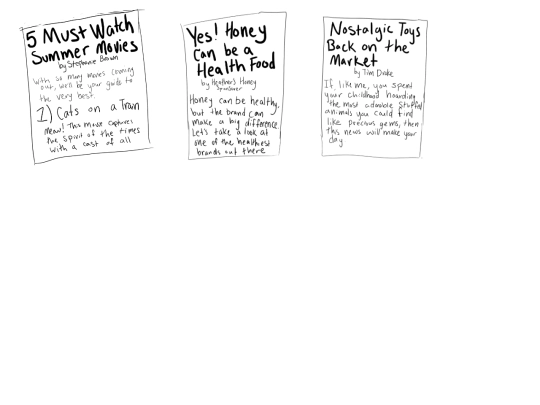 5 Must Watch
Summer Movies
by Stephanie Brown
With so many movies coming
out, let's be your guide to
the very best.
1) Cats on a Train
Meow! This movie captures
the spirit of the times
with a cast of all
Yes! Honey
Can be a
Health Food
by Heather's Honey
Sponsor
Honey can be healthy,
but the brand can
make a big difference.
Let's take a look at
one of the healthiest
brands out there
Nostalgic Toys
Back on the
Market
by Tim Drake
If, like me, you spent
your childhood hoarding
the most adorable stuffed
animals you could find
like precious gems, then
this news will make your
day